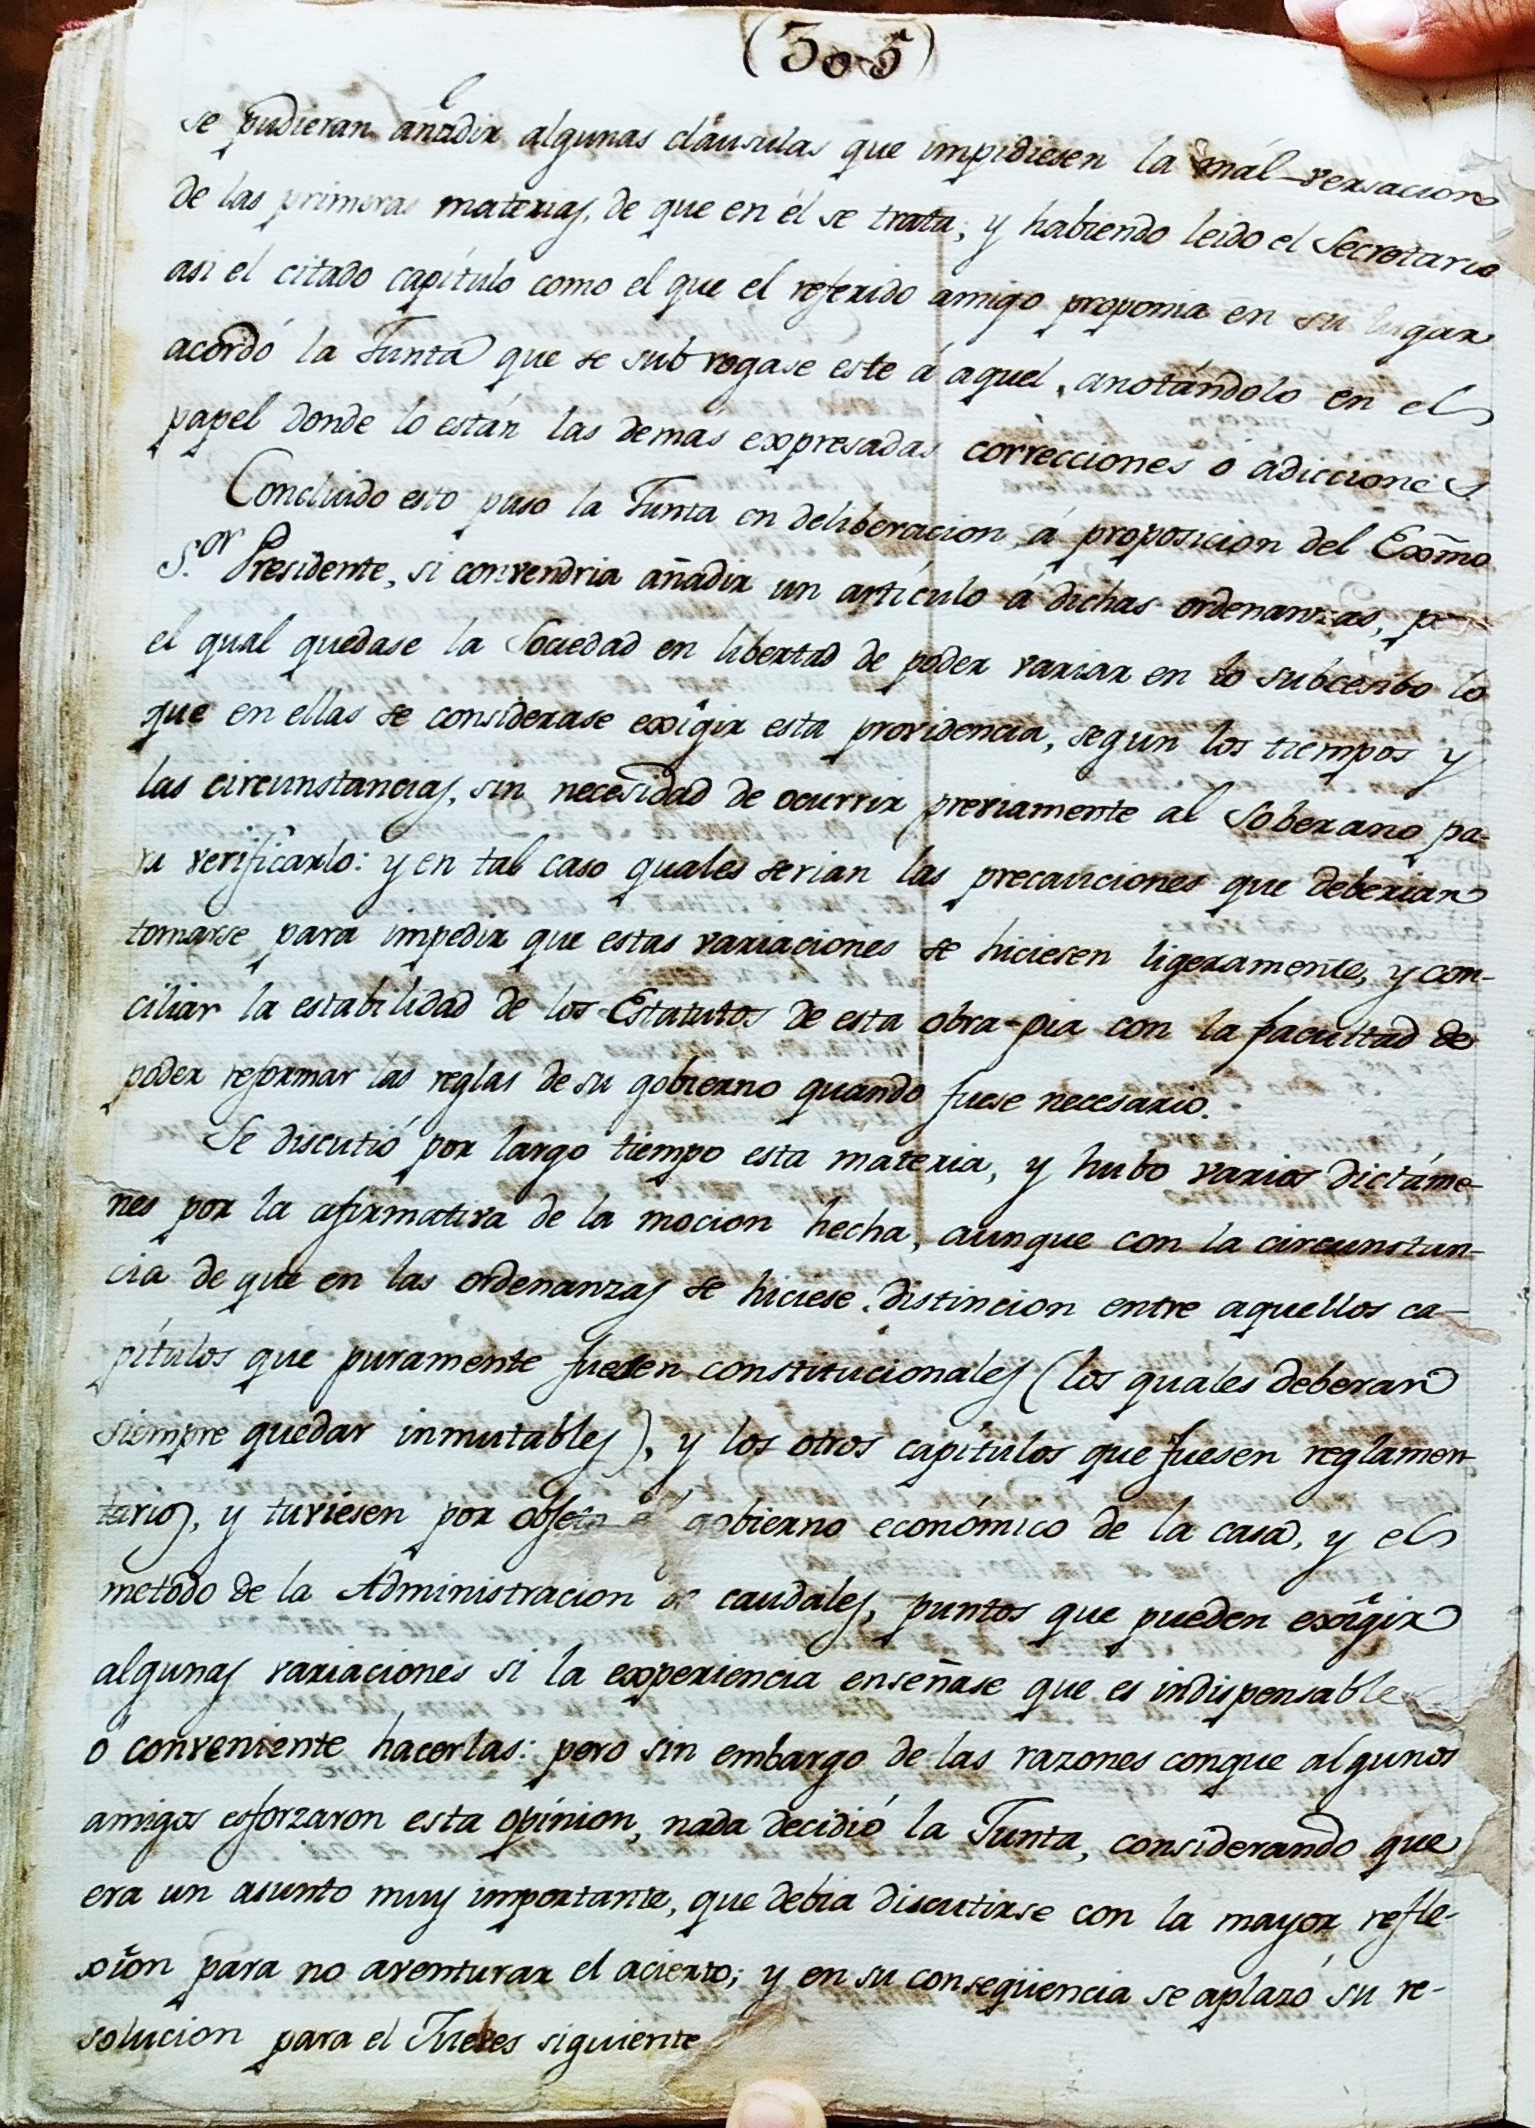 (305)
se pudieran añadir algunas cláusulas que impidiesen la mal-versacion
de las primeras materias, de que en él se trata; y habiendo leido el Secretario
asi el citado capítulo como el que el referido amigo proponia en su lugar
acordó la Junta que se subrogase este á aquel, anotándolo en el
papel donde lo están las demas expresadas correcciones ó adicciones
Concluido esto puso la Junta en deliberacion, á proposicion del Exm̃o
S.or Presidente, si convendria añadir un artículo á dichas ordenanzas, por
el qual quedase la Sociedad en libertad de poder variar en lo subcesibo lo
que en ellas se considerase exîgir esta providencia, segun los tiempos y
las circunstancias, sin necesidad de ocurrir previamente al Soberano pa-
ra verificarlo: y en tal caso quales serian las precauciones que deberian
tomarse para impedir que estas variaciones se hiciesen ligeramente, y con-
ciliar la estabilidad de los Estatutos de esta obra-pia con la facultad de
poder reformar las reglas de su gobierno quando fuese necesario.
Se discutió por largo tiempo esta materia, y hubo varios dictáme-
nes por la afirmativa de la mocion hecha, aunque con la circunstan-
cia de que en las ordenanzas se hiciese distincion entre aquellos ca-
pítulos que puramente fuesen constitucionales (los quales deberan
siempre quedar inmutables), y los otros capítulos que fuesen reglamen-
tarios, y tuviesen por objeto el gobierno económico de la casa, y el
metodo de la Administracion de caudales, puntos que pueden exîgir
algunas variaciones si la experiencia enseñase que es indispensable
o conveniente hacerlas: pero sin embargo de las razones conque algunos
amigos esforzaron esta opinion, nada decidió la Junta, considerando que
era un asunto muy importante, que debia discutirse con la mayor refle-
xîon para no aventurar el acierto; y en su conseqüencia se aplazó su re-
solucion para el Jueves siguiente